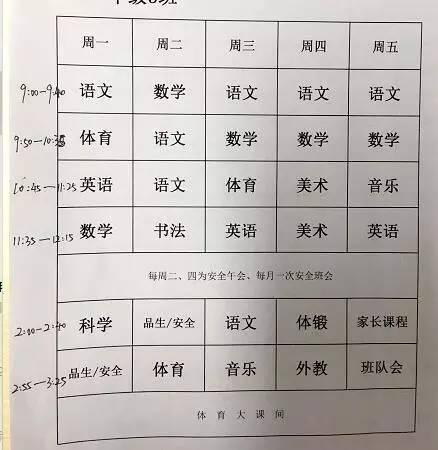 周一 周二 周三 周四 周五
9:00—9:40 语文 数学 语文 语文 语文
9:50—10:35 体育 语文 数学 数学 数学
10:45—11:25 英语 语文 体育 美术 音乐
11:35—12:15 数学 书法 英语 美术 英语
每周二、四为安全午会、每月一次安全班会
2:00—2:40 科学 品生/安全 语文 体锻 家长课程
2:55—3:25 品生/安全 体育 音乐 外教 班队会
体育大课间